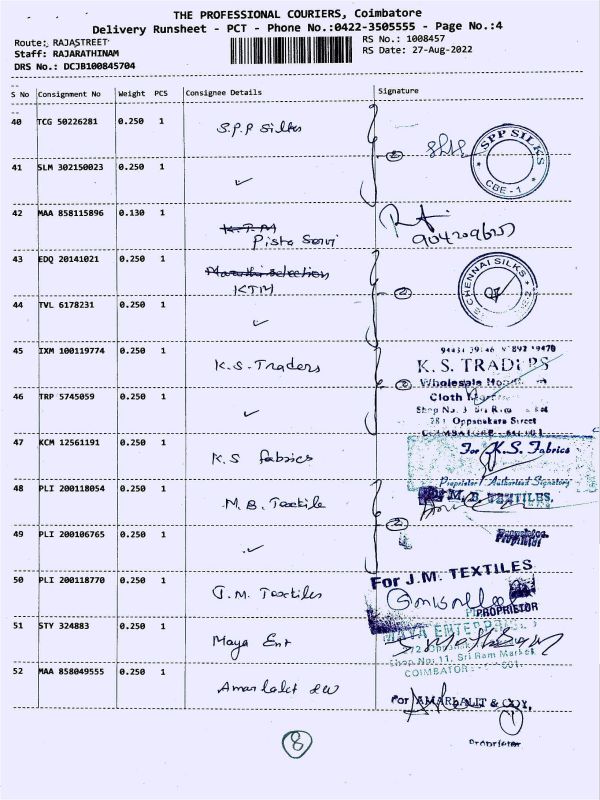 THE PROFESSIONAL COURIERS, Coimbatore
Delivery Runsheet - PCT - Phone No.:0422-3505555 - Page No.:4
Route: RAJASTREET RS No.: 1008457
Staff: RAJARATHINAM RS Date: 27-Aug-2022
DRS No.: DCJB100845704
S No Consignment No Weight PCS Consignee Details Signature
40 TCG 50226281 0.250 1 S.P.P Silks
SPP SILKS
CBE - 1
41 SLM 302150023 0.250 1 ✓
42 MAA 858115896 0.130 1
Pista
43 EDQ 20141021 0.250 1
KTM
CHENNAI SILKS
44 TVL 6178231 0.250 1 ✓
45 IXM 100119774 0.250 1 K.S.Traders
K. S. TRADERS
Wholesale
46 TRP 5745059 0.250 1 ✓
Cloth
Shop No. 3
Oppanakara Street
47 KCM 12561191 0.250 1 K.S fabrics
For K.S. Fabrics
Proprietor / Authorised Signatory
48 PLI 200118054 0.250 1 M.B. Textile
M. B. TEXTILES.
49 PLI 200106765 0.250 1 ✓
Proprietor
50 PLI 200118770 0.250 1 J.M. Textiles
For J.M. TEXTILES
PROPRIETOR
51 STY 324883 0.250 1 Maya Ent
MAYA ENTERPRISES
Shop No: 11, Sri Ram Market
COIMBATORE
52 MAA 858049555 0.250 1 Amarlalit
For AMARLALIT & COY,
Proprietor
8